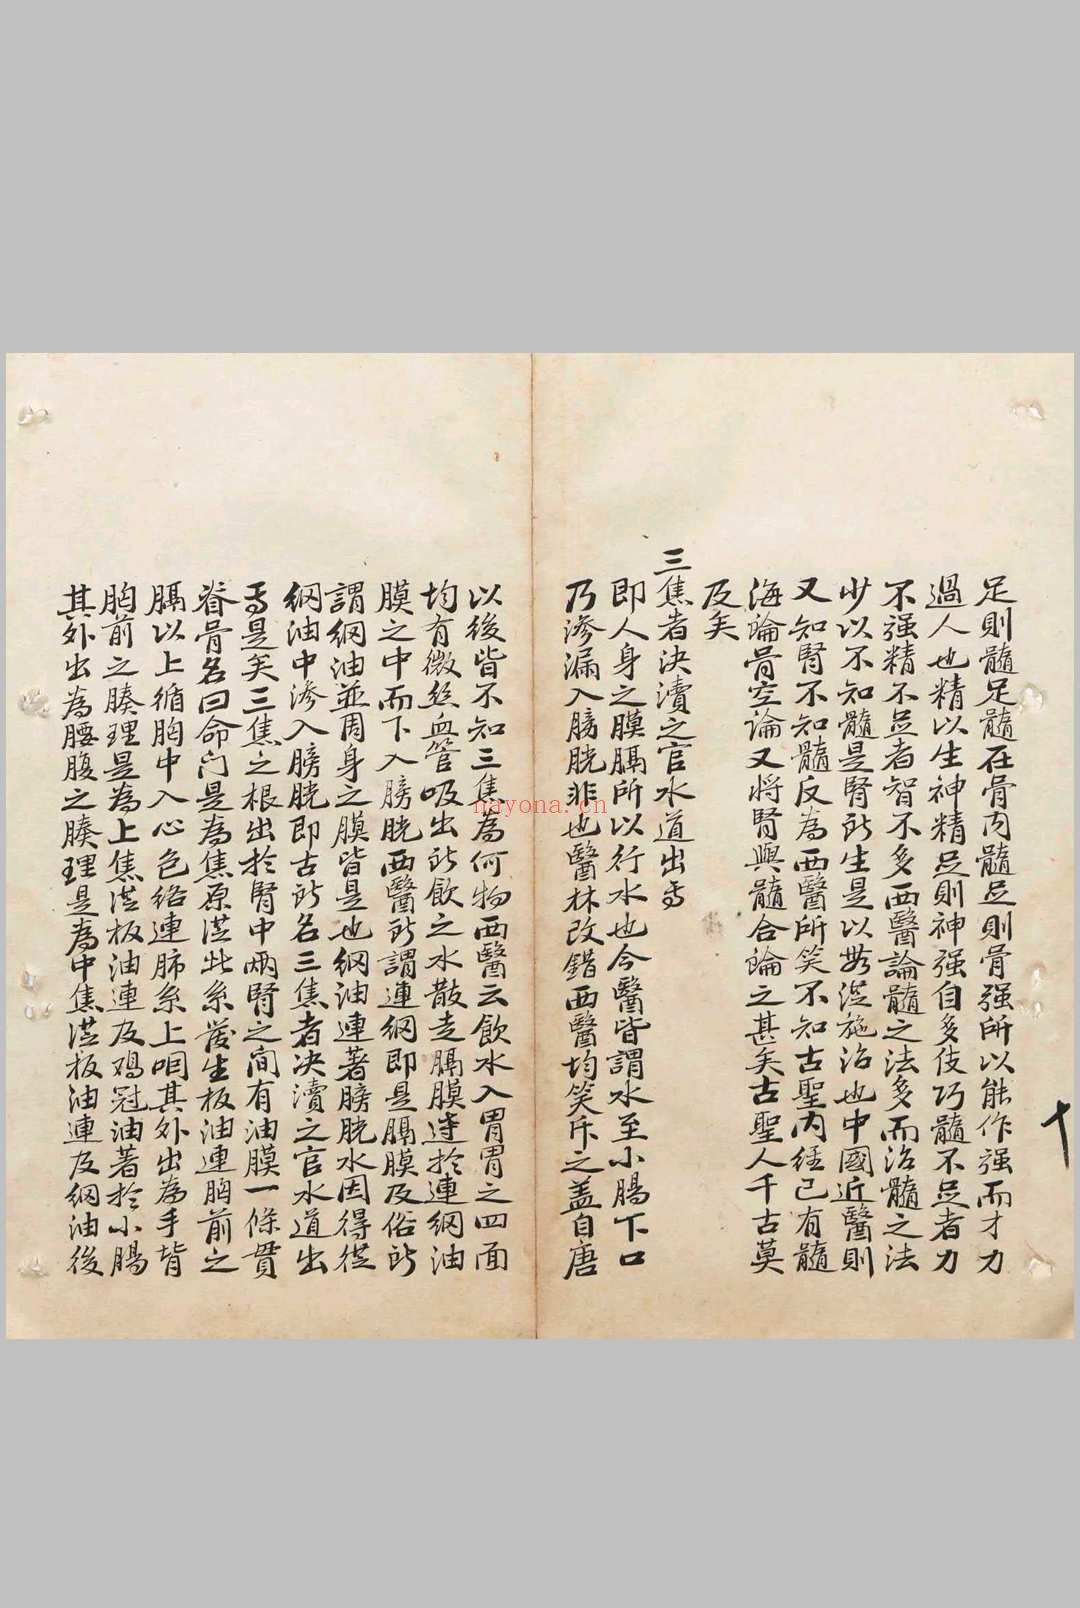 足則髓足髓在骨内髓足則骨强所以能作强而才力
過人也精以生神精足則神强自多伎巧髓不足者力
不强精不足者智不多西醫論髓之法多而治髓之法
少以不知髓是腎所生是以無從施治也中國近醫則
又知腎不知髓反為西醫所笑不知古聖内經已有髓
海論骨空論又將腎與髓合論之甚矣古聖人千古莫
及矣
三焦者決瀆之官水道出焉
即人身之膜膈所以行水也今醫皆謂水至小腸下口
乃滲漏入膀胱非也醫林改錯西醫均笑斥之蓋自唐
以後皆不知三焦為何物西醫云飲水入胃胃之四面
均有微絲血管吸出所飲之水散走膈膜達於連網油
膜之中而下入膀胱西醫所謂連網即是膈膜及俗所
謂網油並周身之膜皆是也網油連著膀胱水因得從
網油中滲入膀胱即古所名三焦者決瀆之官水道出
焉是矣三焦之根出於腎中兩腎之間有油膜一條貫
脊骨名曰命门是為焦原從此系發生板油連胸前之
膈以上循胸中入心色絡連肺系上咽其外出為手背
胸前之腠理是為上焦從板油連及鸡冠油著於小腸
其外出為腰腹之腠理是為中焦從板油連及網油後
十
nayona.cn